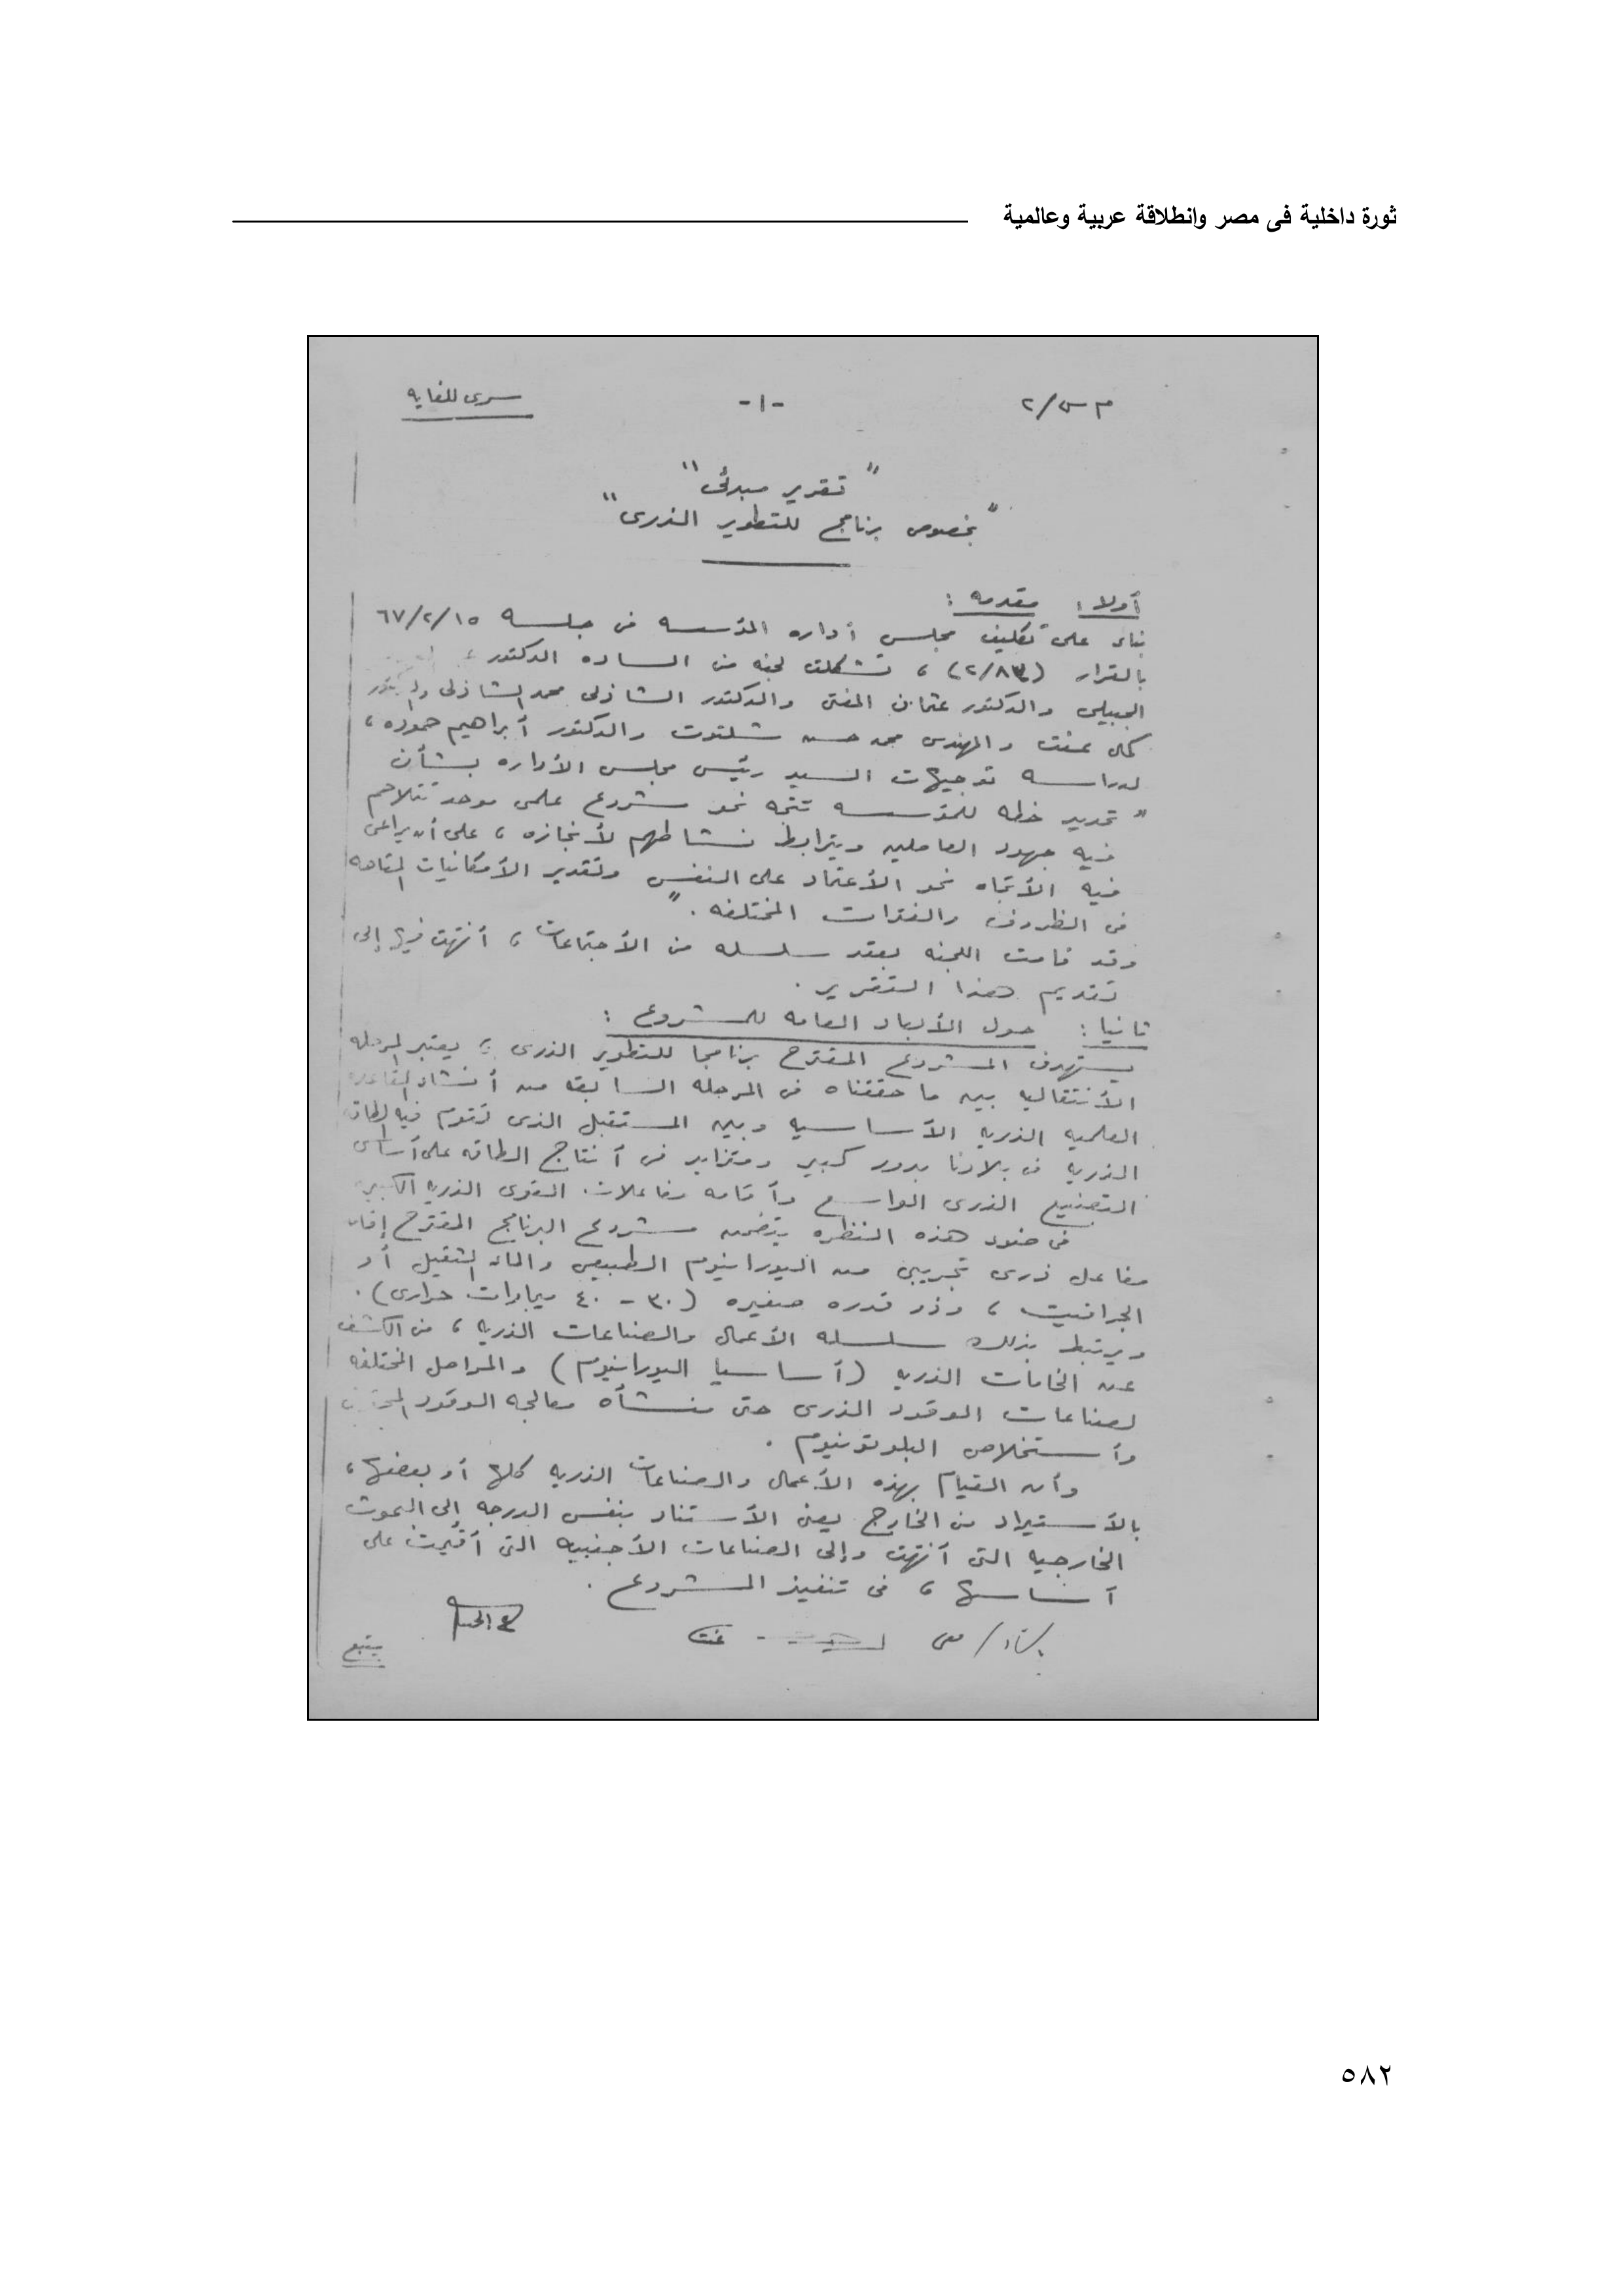 ثورة داخلية فى مصر وانطلاقة عربية وعالمية
م س/٢
-١-
سرى للغايه
" تقرير مبدئى "
" بخصوص برنامج للتطوير الذرى "
أولا : مقدمه :
بناء على تكليف مجلس أداره المؤسسه فى جلسه ٦٧/٢/١٥
بالقرار (٢/٨٣) ، تشكلت لجنه من الساده الدكتور
الجبيلى والدكتور عثمان المفتى والدكتور الشاذلى محمد الشاذلى والدكتور
كمال عفت والمهندس محمد حسن شلتوت والدكتور أبراهيم حموده ،
لدراسه توجيهات السيد رئيس مجلس الأداره بشأن
" تحديد خطه للمؤسسه تتجه نحو مشروع علمى موحد تتلاحم
فيه جهود العاملين ويترابط نشاطهم لأنجازه ، على أن يراعى
فيه الأتجاه نحو الأعتماد على النفس وتقدير الأمكانيات المتاحه
فى الظروف والفترات المختلفه . "
وقد قامت اللجنه بعقد سلسله من الأجتماعات ، أنتهت فيها إلى
تقديم هذا التقرير .
ثانيا : حول الأبعاد العامه للمشروع :
يستهدف المشروع المقترح برنامجا للتطوير الذرى ، يعتبر المرحله
الأنتقاليه بين ما حققناه فى المرحله السابقه من أنشاء القاعده
العلميه الذريه الأساسيه وبين المستقبل الذى تقوم فيه الطاقه
الذريه فى بلادنا بدور كبير ومتزايد فى أنتاج الطاقه على أساس
التصنيع الذرى الواسع وأقامه مفاعلات القوى الذريه الكبيره
فى ضوء هذه النظره يتضمن مشروع البرنامج المقترح إقامه
مفاعل ذرى تجريبى من اليورانيوم الطبيعى والماء الثقيل أو
الجرافيت ، وذو قدره صغيره (٣٠ - ٤٠ ميجاوات حرارى) .
ويرتبط بذلك سلسله الأعمال والصناعات الذريه ، من الكشف
عن الخامات الذريه (أساسيا اليورانيوم) والمراحل المختلفه
لصناعات الوقود الذرى حتى منشأه معالجه الوقود المحترق
وأستخلاص البلوتونيوم .
وأن القيام بهذه الأعمال والصناعات الذريه كلها أو بعضها ،
بالأستيراد من الخارج يعنى الأستناد بنفس الدرجه إلى البحوث
الخارجيه التى أنتهت وإلى الصناعات الأجنبيه التى أقيمت على
أساسها ، فى تنفيذ المشروع .
يتبع
٥٨٢